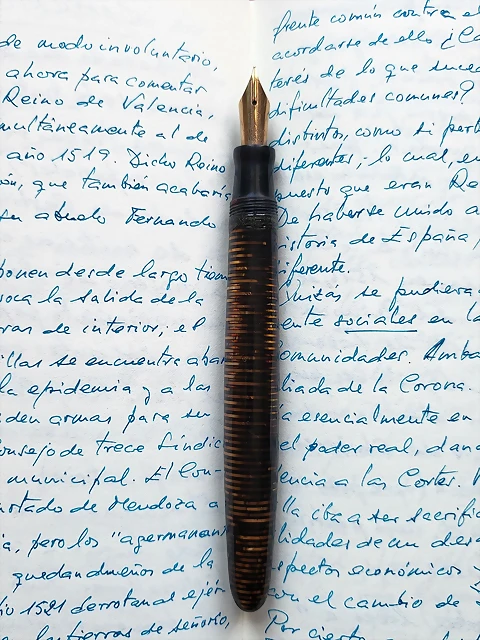 de modo involuntario,
ahora para comentar
Reino de Valencia,
multáneamente al de
año 1519. Dicho Reino
que también acabaría
su abuelo Fernando
ponen desde largo tiem
oca la salida de la
ras de interior; el
llas se encuentra aban
la epidemia y a las
den armas para su
onsejo de trece Síndic
municipal. El Con-
urtado de Mendoza a
pero los "agermanan
quedan dueños de la
io 1521 derrotan al ejér
tierras de señorío,
frente común contra el
acordarse de ello ¿Ca
terés de lo que suced
dificultades comunes?
distintos, como si perte
diferentes; lo cual, en
puesto que eran Re
De haberse unido a
istoria de España,
iferente.
Quizás se pudiera
ente sociales en la
omunidades. Amba
liada de la Corona.
a esencialmente en
el poder real, dan
lencia a las Cortes.
lla iba a ser sacrific
lidades de un des
spectos económicos y
con el cambio de
Por cierto